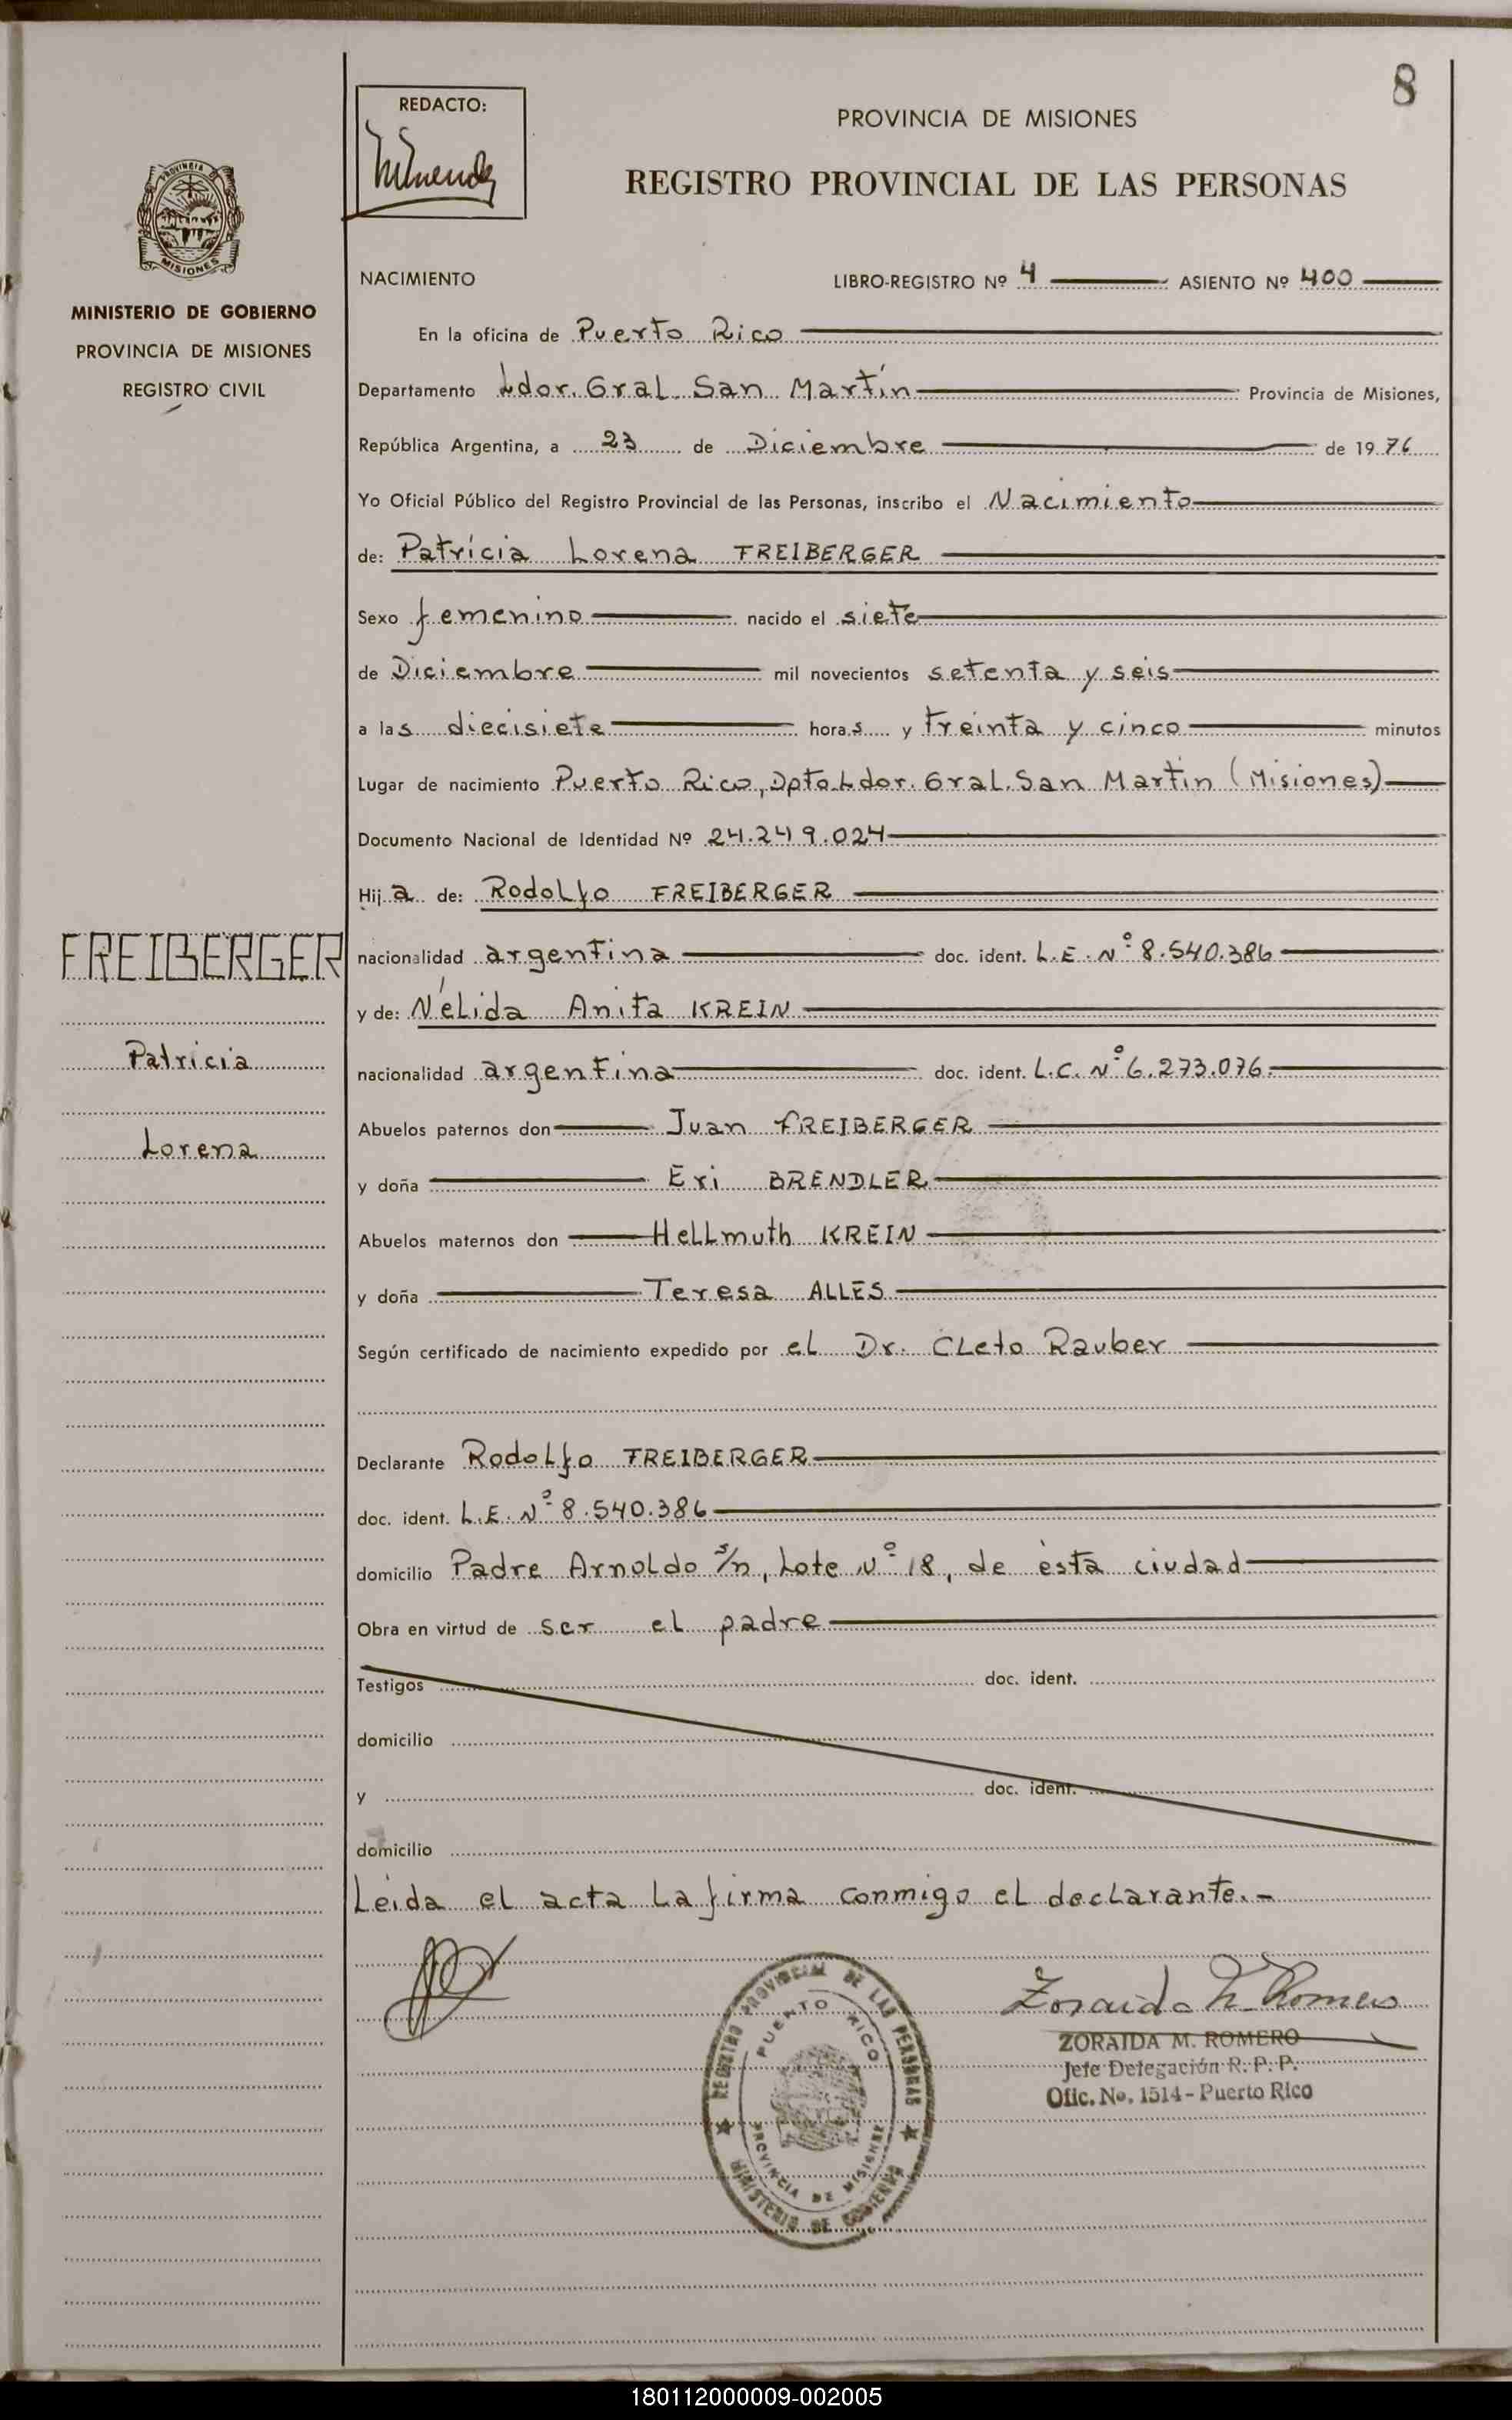 8
REDACTO:
PROVINCIA DE MISIONES
REGISTRO PROVINCIAL DE LAS PERSONAS
PROVINCIA
MISIONES
MINISTERIO DE GOBIERNO
PROVINCIA DE MISIONES
REGISTRO CIVIL
NACIMIENTO LIBRO-REGISTRO Nº 4 ASIENTO Nº 400
En la oficina de Puerto Rico
Departamento Ldor. Gral. San Martín Provincia de Misiones,
República Argentina, a 23 de Diciembre de 1976
Yo Oficial Público del Registro Provincial de las Personas, inscribo el Nacimiento
de: Patricia Lorena FREIBERGER
Sexo femenino nacido el siete
de Diciembre mil novecientos setenta y seis
a las diecisiete horas y treinta y cinco minutos
Lugar de nacimiento Puerto Rico, Dpto. Ldor. Gral. San Martin (Misiones)
Documento Nacional de Identidad Nº 24.249.024
Hija de: Rodolfo FREIBERGER
FREIBERGER
nacionalidad argentina doc. ident. L.E. Nº 8.540.386
y de: Nélida Anita KREIN
Patricia
nacionalidad argentina doc. ident. L.C. Nº 6.273.076
Abuelos paternos don Juan FREIBERGER
Lorena
y doña Eri BRENDLER
Abuelos maternos don Hellmuth KREIN
y doña Teresa ALLES
Según certificado de nacimiento expedido por el Dr. Cleto Rauber
Declarante Rodolfo FREIBERGER
doc. ident. L.E. Nº 8.540.386
domicilio Padre Arnoldo s/n, Lote Nº 18, de ésta ciudad
Obra en virtud de ser el padre
Testigos doc. ident.
domicilio
y doc. ident.
domicilio
Leída el acta la firma conmigo el declarante.-
Zoraida M. Romero
ZORAIDA M. ROMERO
Jefe Delegación R. P. P.
Ofic. No. 1514 - Puerto Rico
REGISTRO PROVINCIAL DE LAS PERSONAS
PUERTO RICO
PROVINCIA DE MISIONES
MINISTERIO DE GOBIERNO
180112000009-002005